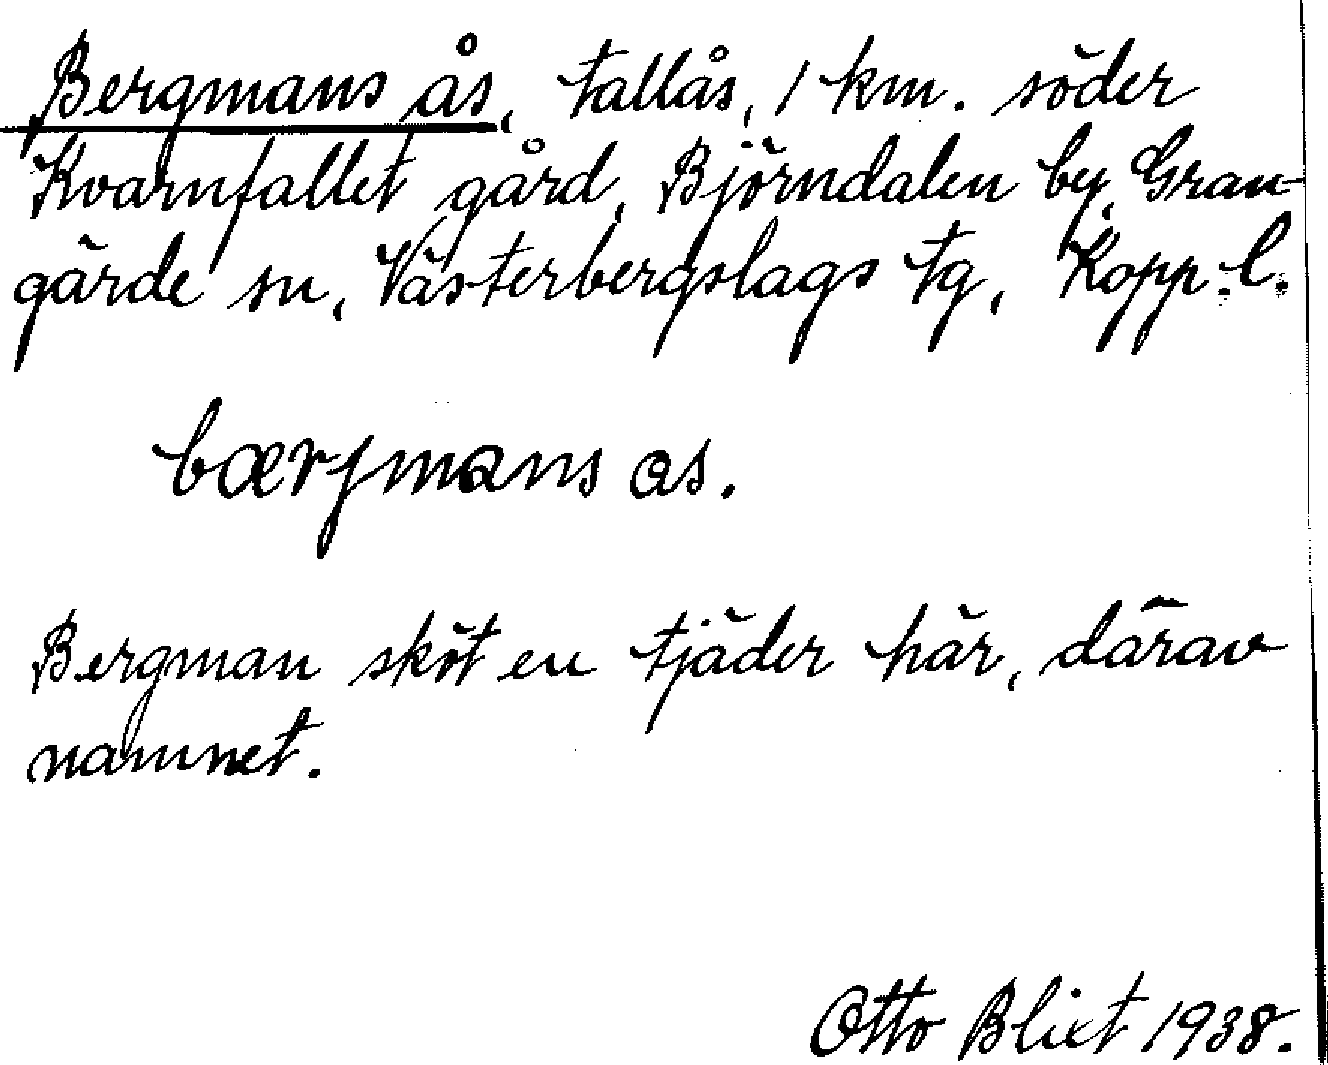 Bergmans ås, tallås, 1 km. söder
Kvarnfallet gård, Björndalen by, Gran-
gärde sn, Västerbergslags tg, Kopp. l.
bærjmans ɑs.
Bergman sköt en tjäder här, därav
namnet.
Otto Blixt 1938.